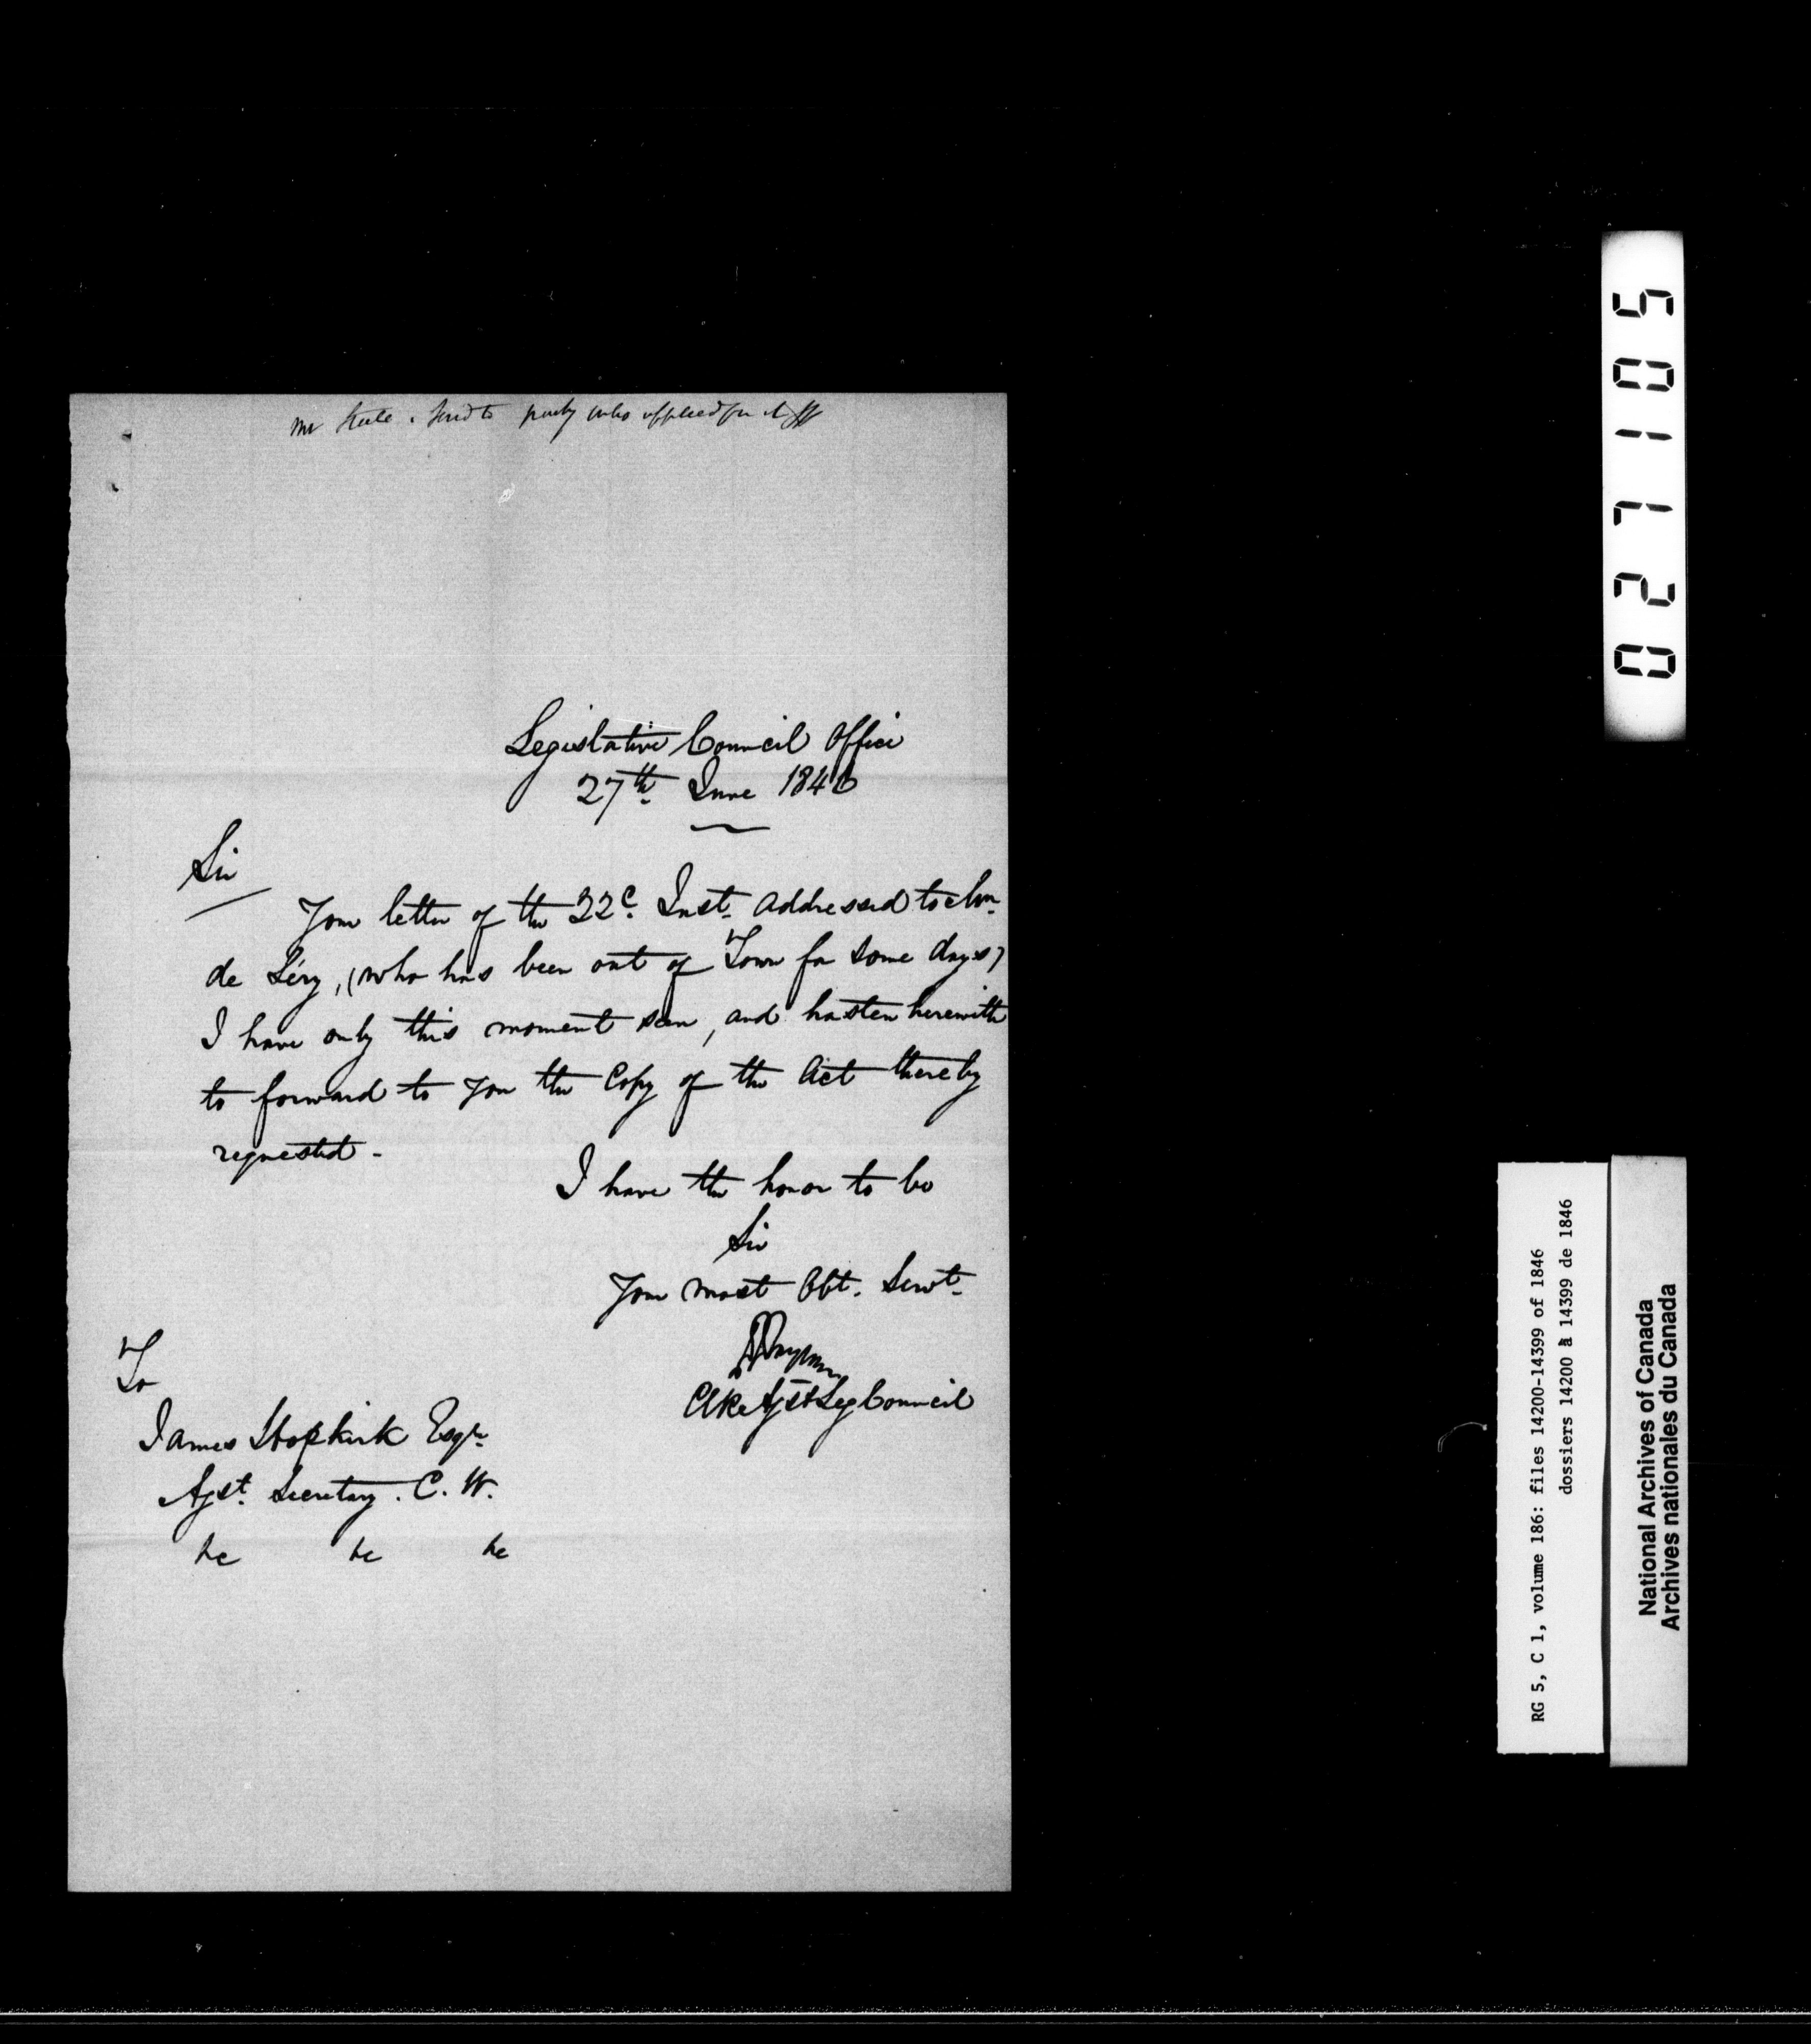 Mr Steele. Send to party who applied for it
Legislative Council Office
27th June 1846
Sir
Your letter of the 22d. Inst. addressed to Mr.
de Léry, (who has been out of Town for some days)
I have only this moment seen, and hasten herewith
to forward to you the Copy of the Act thereby
requested -
I have the honor to be
Sir
Your most Obt. Servt.
Clk Asst Leg Council
To
James Hopkirk Esqre.
Asst. Secretary. C. W.
&c &c &c
501720
RG 5, C 1, volume 186: files 14200-14399 of 1846
dossiers 14200 à 14399 de 1846
National Archives of Canada
Archives nationales du Canada